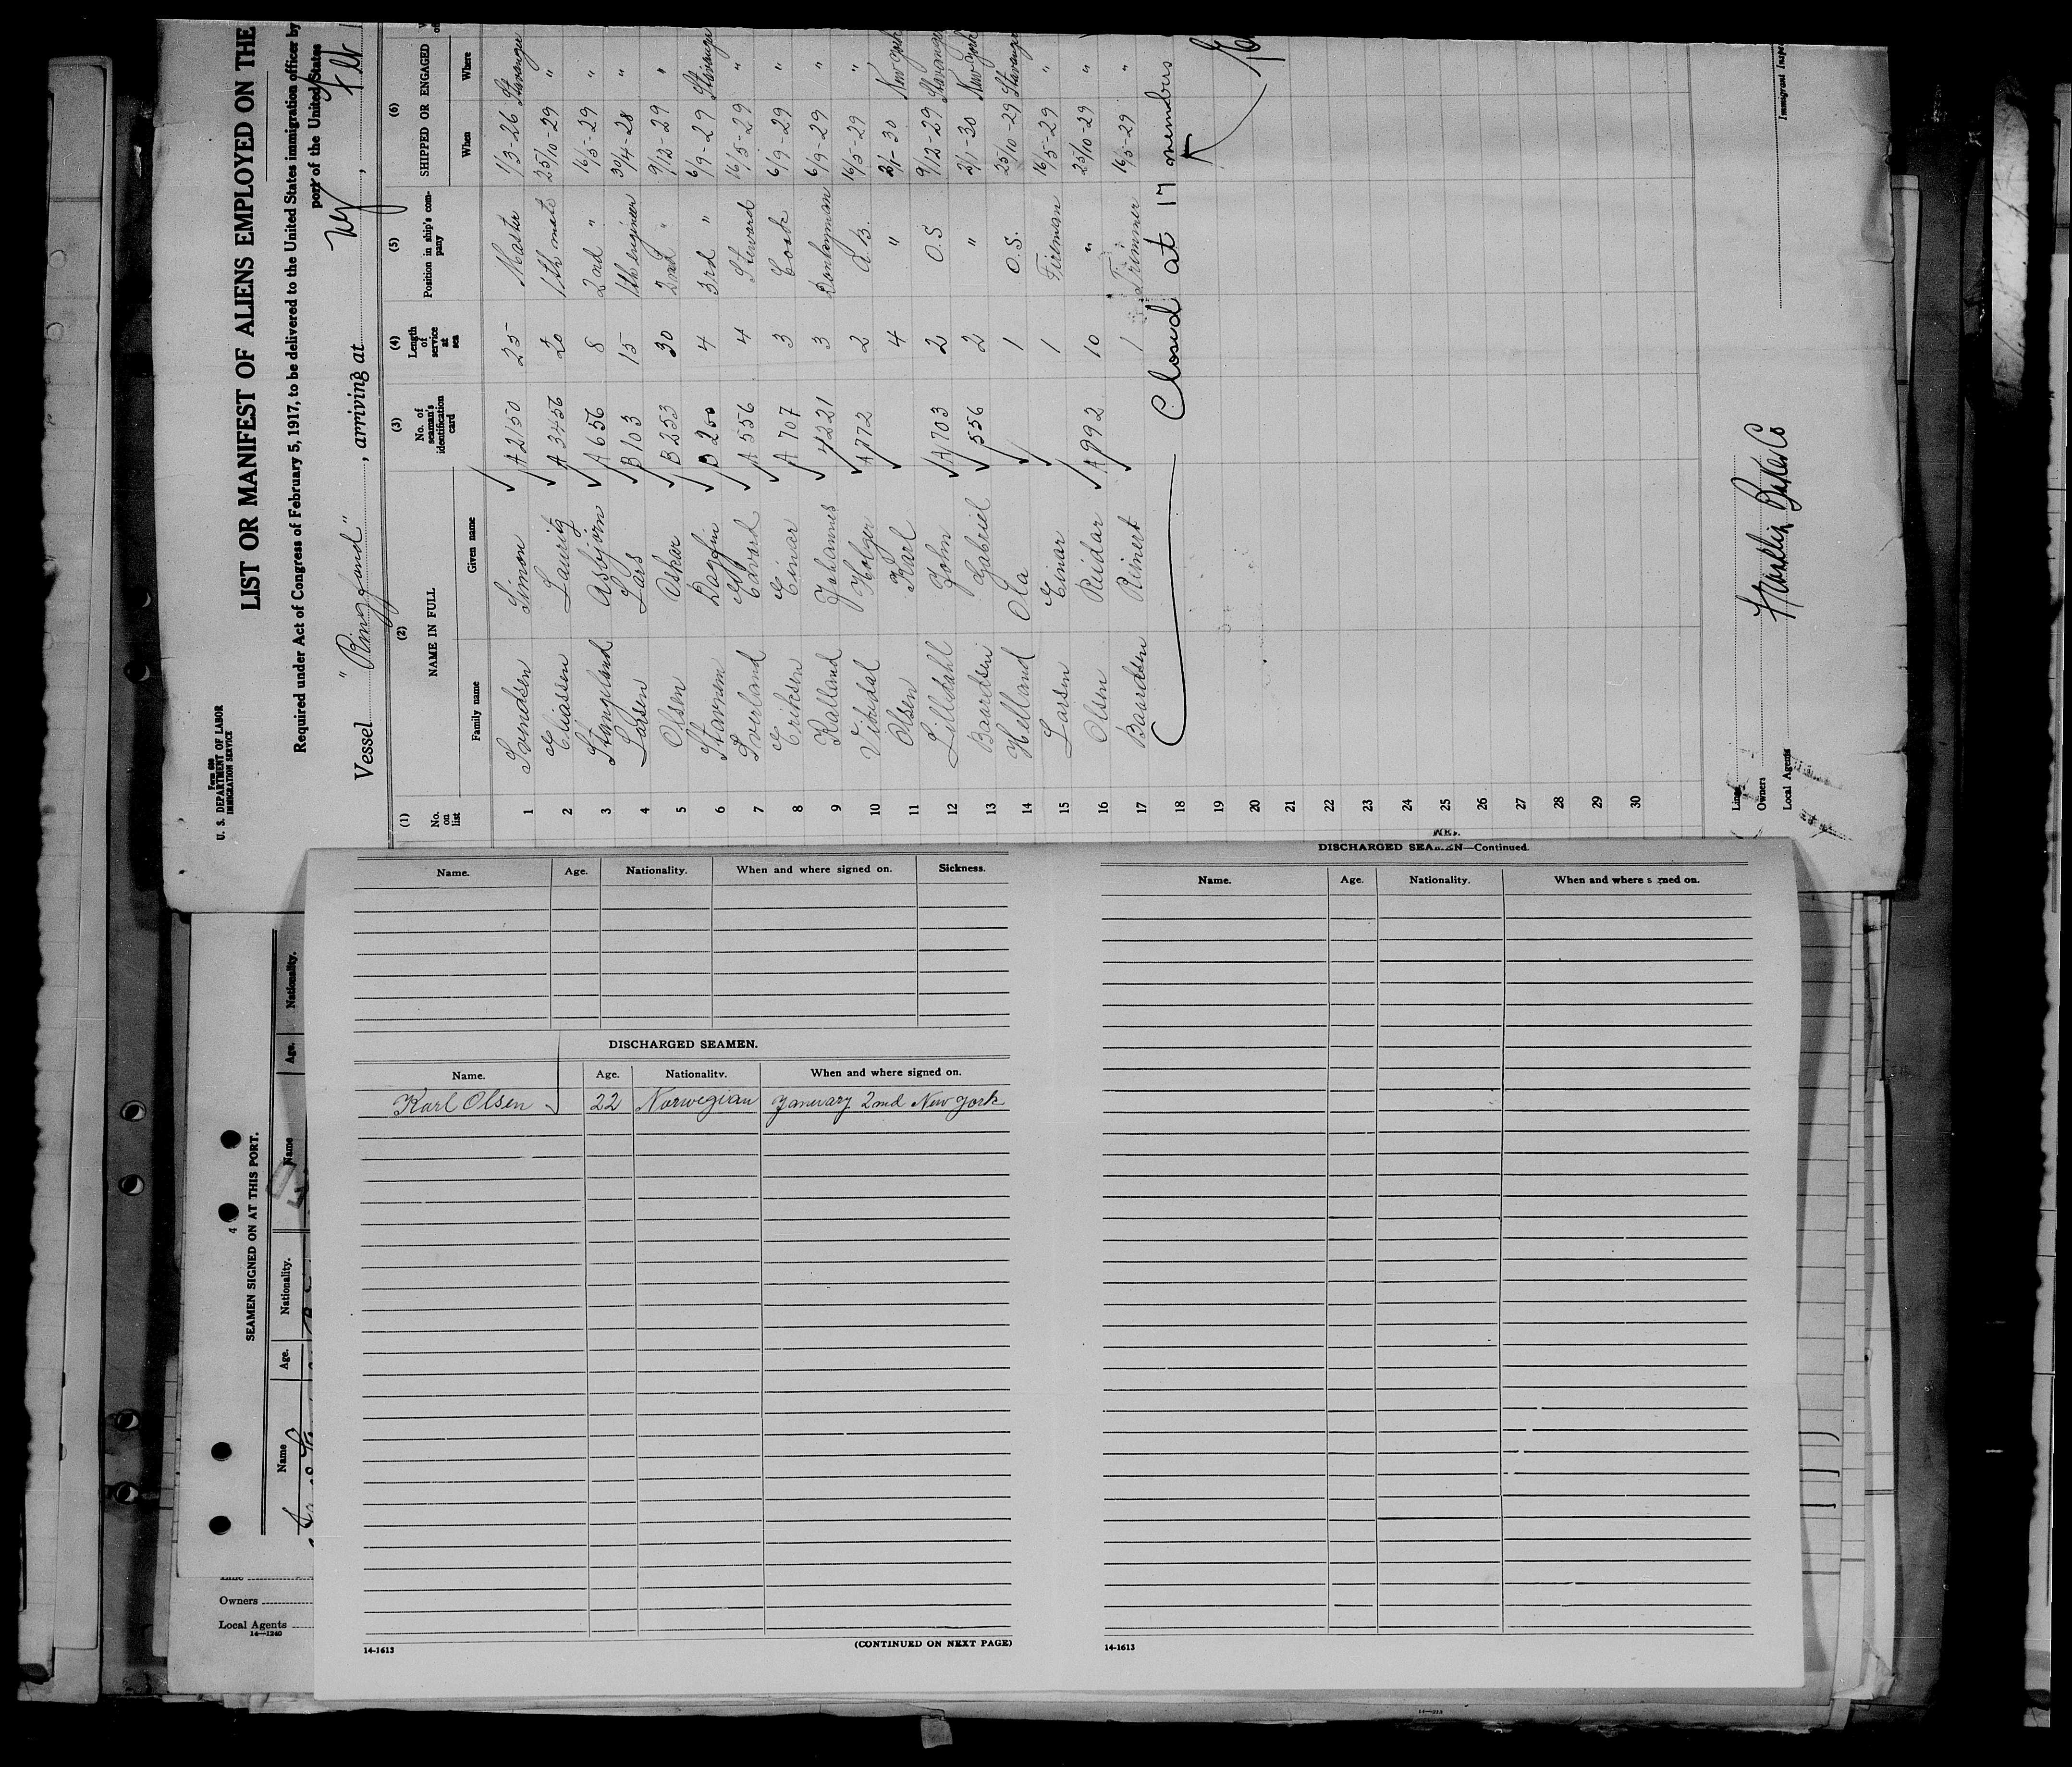 Form 680
U. S. DEPARTMENT OF LABOR
IMMIGRATION SERVICE
LIST OR MANIFEST OF ALIENS EMPLOYED ON THE
Required under Act of Congress of February 5, 1917, to be delivered to the United States immigration officer by
port of the United States
Vessel "Ringfond", arriving at Ny,
(1) (2) (3) (4) (5) (6)
No. on list NAME IN FULL No. of seaman's identification card Length of service at sea Position in ship's company SHIPPED OR ENGAGED
Family name Given name When Where
1 Svendsen Simon A2150 25 Master 1/3-26 Stavanger
2 Eliassen Lauritz A3456 20 1th mate 25/10-29 "
3 Stangeland Asbjørn A656 8 2nd " 16/5-29 "
4 Larsen Lars B103 15 1th engineer 30/4-28 "
5 Olsen Oskar B253 30 2nd " 9/12-29 "
6 Stavnem Dagfin D200 4 3rd " 6/9-29 Stavanger
7 Sverland Edvard A556 4 Steward 16/5-29 "
8 Eriksen Einar A707 3 Cook 6/9-29 "
9 Kalland Johannes 4221 3 Donkeyman 6/9-29 "
10 Vibedal Holger A772 2 A.B. 16/5-29 "
11 Olsen Karl 4 " 2/1-30 New York
12 Lilledahl John A703 2 O.S 9/12-29 Stavanger
13 Baardsen Gabriel 556 2 " 2/1-30 New York
14 Helland Ola 1 O.S. 25/10-29 Stavanger
15 Larsen Einar 1 Fireman 16/5-29 "
16 Olsen Reidar A992 10 " 25/10-29 "
17 Baardsen Reinert 1 Trimmer 16/5-29 "
18 Closed at 17 members
19
20
21
22
23
24
25
26
27
28
29
30
Line
Owners
Local Agents Franklin Baker Co
Immigrant Inspe
Name. Age. Nationality. When and where signed on. Sickness.
DISCHARGED SEAMEN.
Name. Age. Nationality. When and where signed on.
Karl Olsen 22 Norwegian January 2nd New York
14-1613 (CONTINUED ON NEXT PAGE)
DISCHARGED SEAMEN—Continued.
Name. Age. Nationality. When and where signed on.
14-1613
4
SEAMEN SIGNED ON AT THIS PORT.
Name Age. Nationality. Name Age. Nationality.
Owners
Local Agents
14—1240